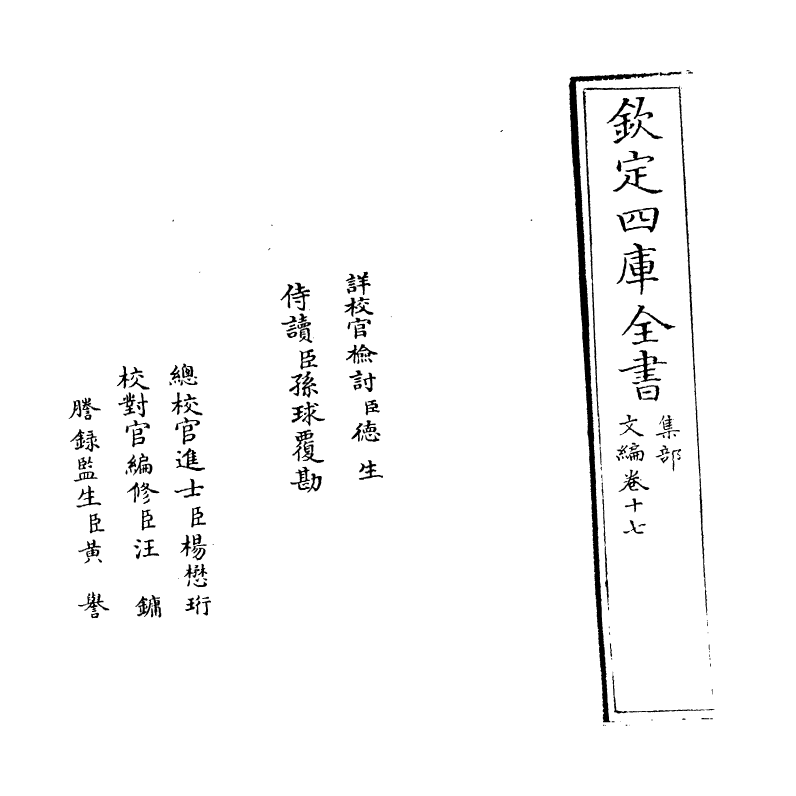 欽定四庫全書
集部
文編卷十七
詳校官檢討臣德生
侍讀臣孫球覆勘
總校官進士臣楊懋珩
校對官編修臣汪鏞
謄錄監生臣黃譽